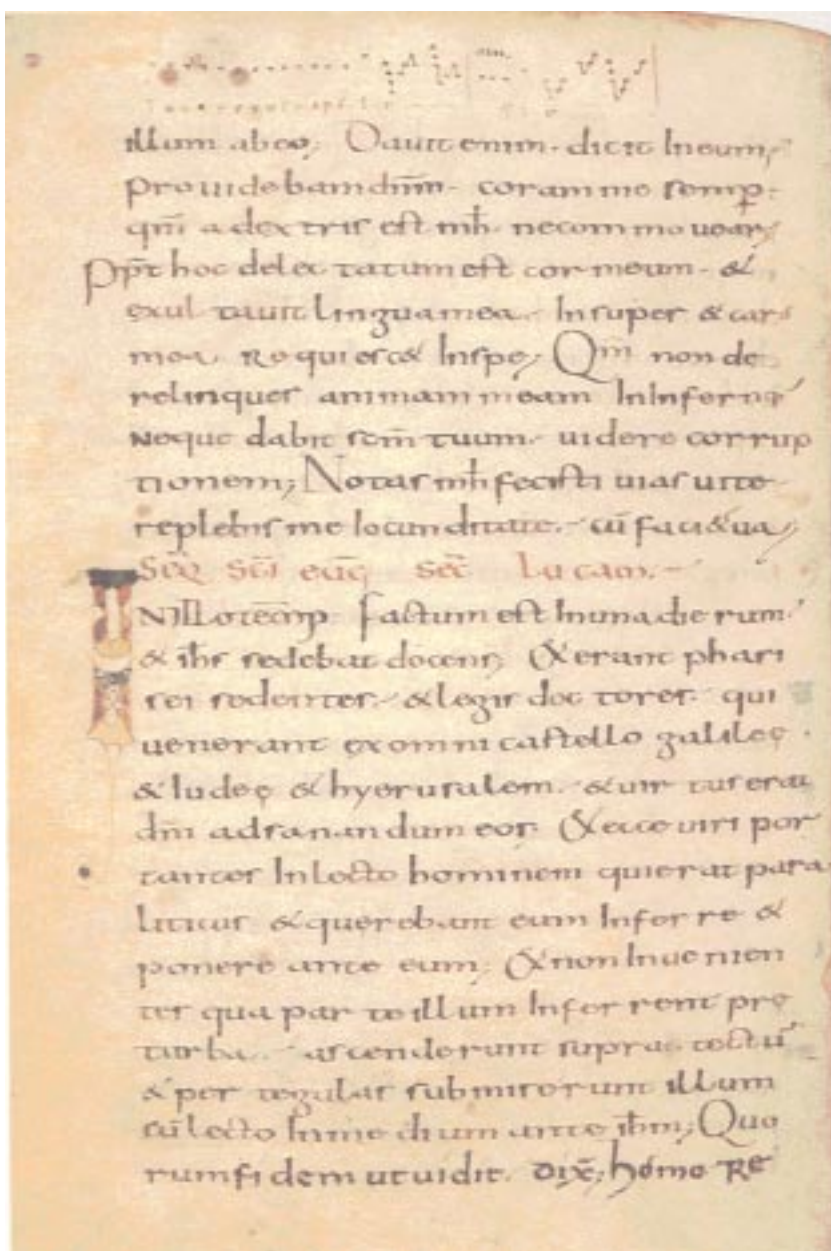 illum ab eo; Dauit enim· dicit In eum;
prouidebam dñm· coram me semp̱·
qm̄ a dextris est mh̄· ne commouear;
Ppt̄ hoc delectatum est cor meum· &
exultauit lingua mea· Insuper & car
mea requiesc& Inspe; Qm̄ non de
relinques animam meam In Inferno
neque dabis scm̄ tuum· uidere corrup
tionem; Notas mh̄ fecisti uias uite
replebis me Iocunditate· cū facie tua;
SEQ̄ SC̄I eūg̱ sec̄ Lucam·
IN Illo temp̱ factum est In una dierum·
& ih̄s sedebat docens; & erant phari
sei sedentes· & legis doctores· qui
uenerant ex omni castello galileę
& Iudeę & hyerusalem· & uirtus erat
dn̄i ad sanandum eos· & ecce uiri por
tantes In lecto hominem qui erat para
liticus & querebant eum Inferre &
ponere ante eum; & non Inuenien
tes qua parte illum Inferrent prę
turba· ascenderunt supra tectū
& per tegulas submiserunt illum
cū lecto In medium ante ih̄m; Quo
rum fidem ut uidit· dix̄; homo Re